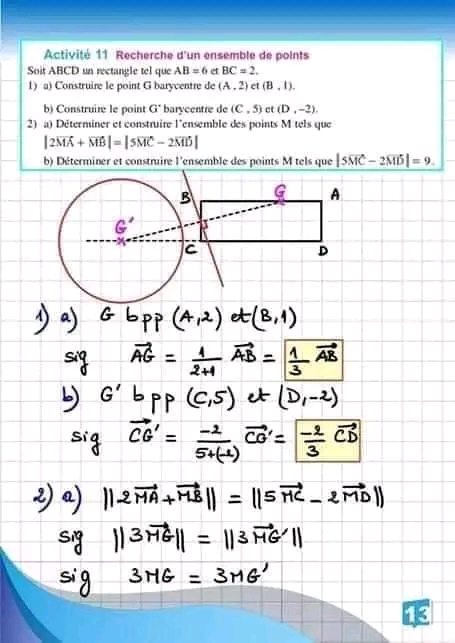 Activité 11 Recherche d'un ensemble de points
Soit ABCD un rectangle tel que AB = 6 et BC = 2.
1) a) Construire le point G barycentre de (A , 2) et (B , 1).
b) Construire le point G' barycentre de (C , 5) et (D , -2).
2) a) Déterminer et construire l'ensemble des points M tels que
|2MA⃗ + MB⃗| = |5MC⃗ - 2MD⃗|
b) Déterminer et construire l'ensemble des points M tels que |5MC⃗ - 2MD⃗| = 9.
B G A
G'
C D
1) a) G bpp (A,2) et (B,1)
sig AG⃗ = 1/(2+1) AB⃗ = 1/3 AB⃗
b) G' bpp (C,5) et (D,-2)
sig CG'⃗ = -2/(5+(-2)) CG'⃗ = -2/3 CD⃗
2) a) ||2MA⃗ + MB⃗|| = ||5MC⃗ - 2MD⃗||
sig ||3MG⃗|| = ||3MG'⃗||
sig 3MG = 3MG'
13